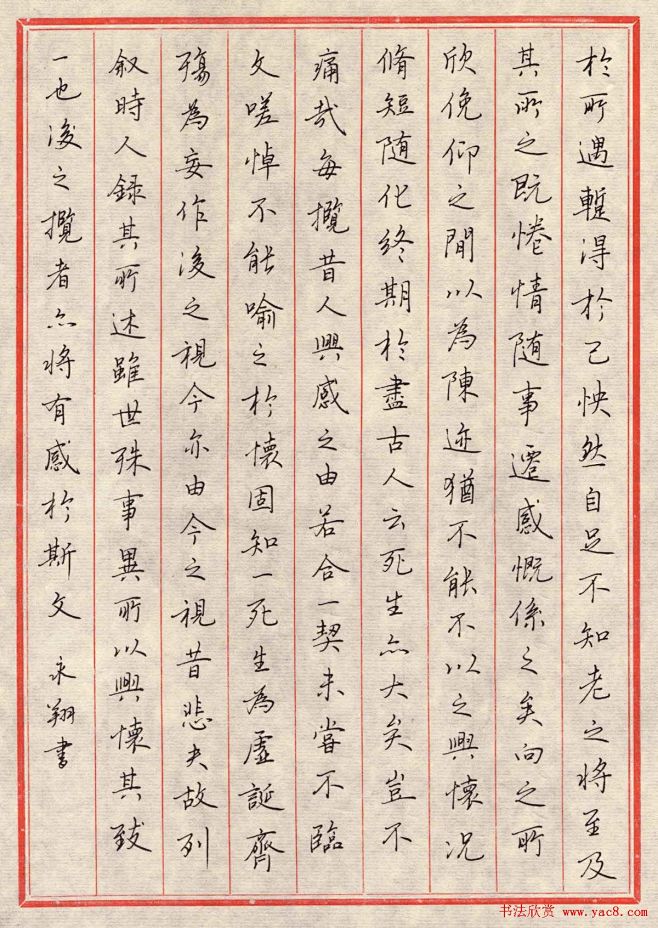 於所遇暫得於己怏然自足不知老之將至及
其所之既惓情随事遷感慨係之矣向之所
欣俛仰之間以為陳迹猶不能不以之興懷况
脩短随化終期於盡古人云死生亦大矣豈不
痛哉每攬昔人興感之由若合一契未嘗不臨
文嗟悼不能喻之於懷固知一死生為虛誕齊
殤為妄作後之視今亦由今之視昔悲夫故列
叙時人録其所述雖世殊事異所以興懷其致
一也後之攬者亦将有感於斯文 永翔書
书法欣赏 www.yac8.com